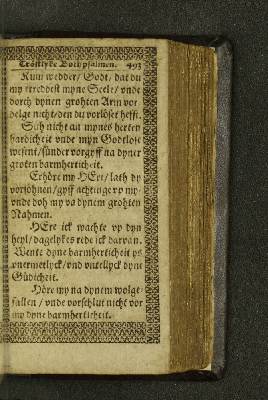 Tröstlyke Bochpsalmen. 493
Kum wedder / Godt / dat du
my erreddest myne Seele / vnde
dorch dynen grohten Arm vor-
delge nicht / den du vorlöset heffst.
Süh nicht an mynes herten
hardicheit vnde myn Godtlose
wesent / sünder vorgyff na dyner
groten barmherticheit.
Erhöre my HEre / lath dy
vorsöhnen / gyff achtinge vp my
vnde doh my va dynem grohten
Nahmen.
HEre ick wachte vp dyn
heyl / dagelykes rede ick darvan.
Wente dyne barmherticheit ys
vnermetlyck / vnd vntellyck dyne
Güdicheit.
Höre my na dynem wolge-
fallen / vnde vorschlut nicht vor
my dyne barmherticheit.